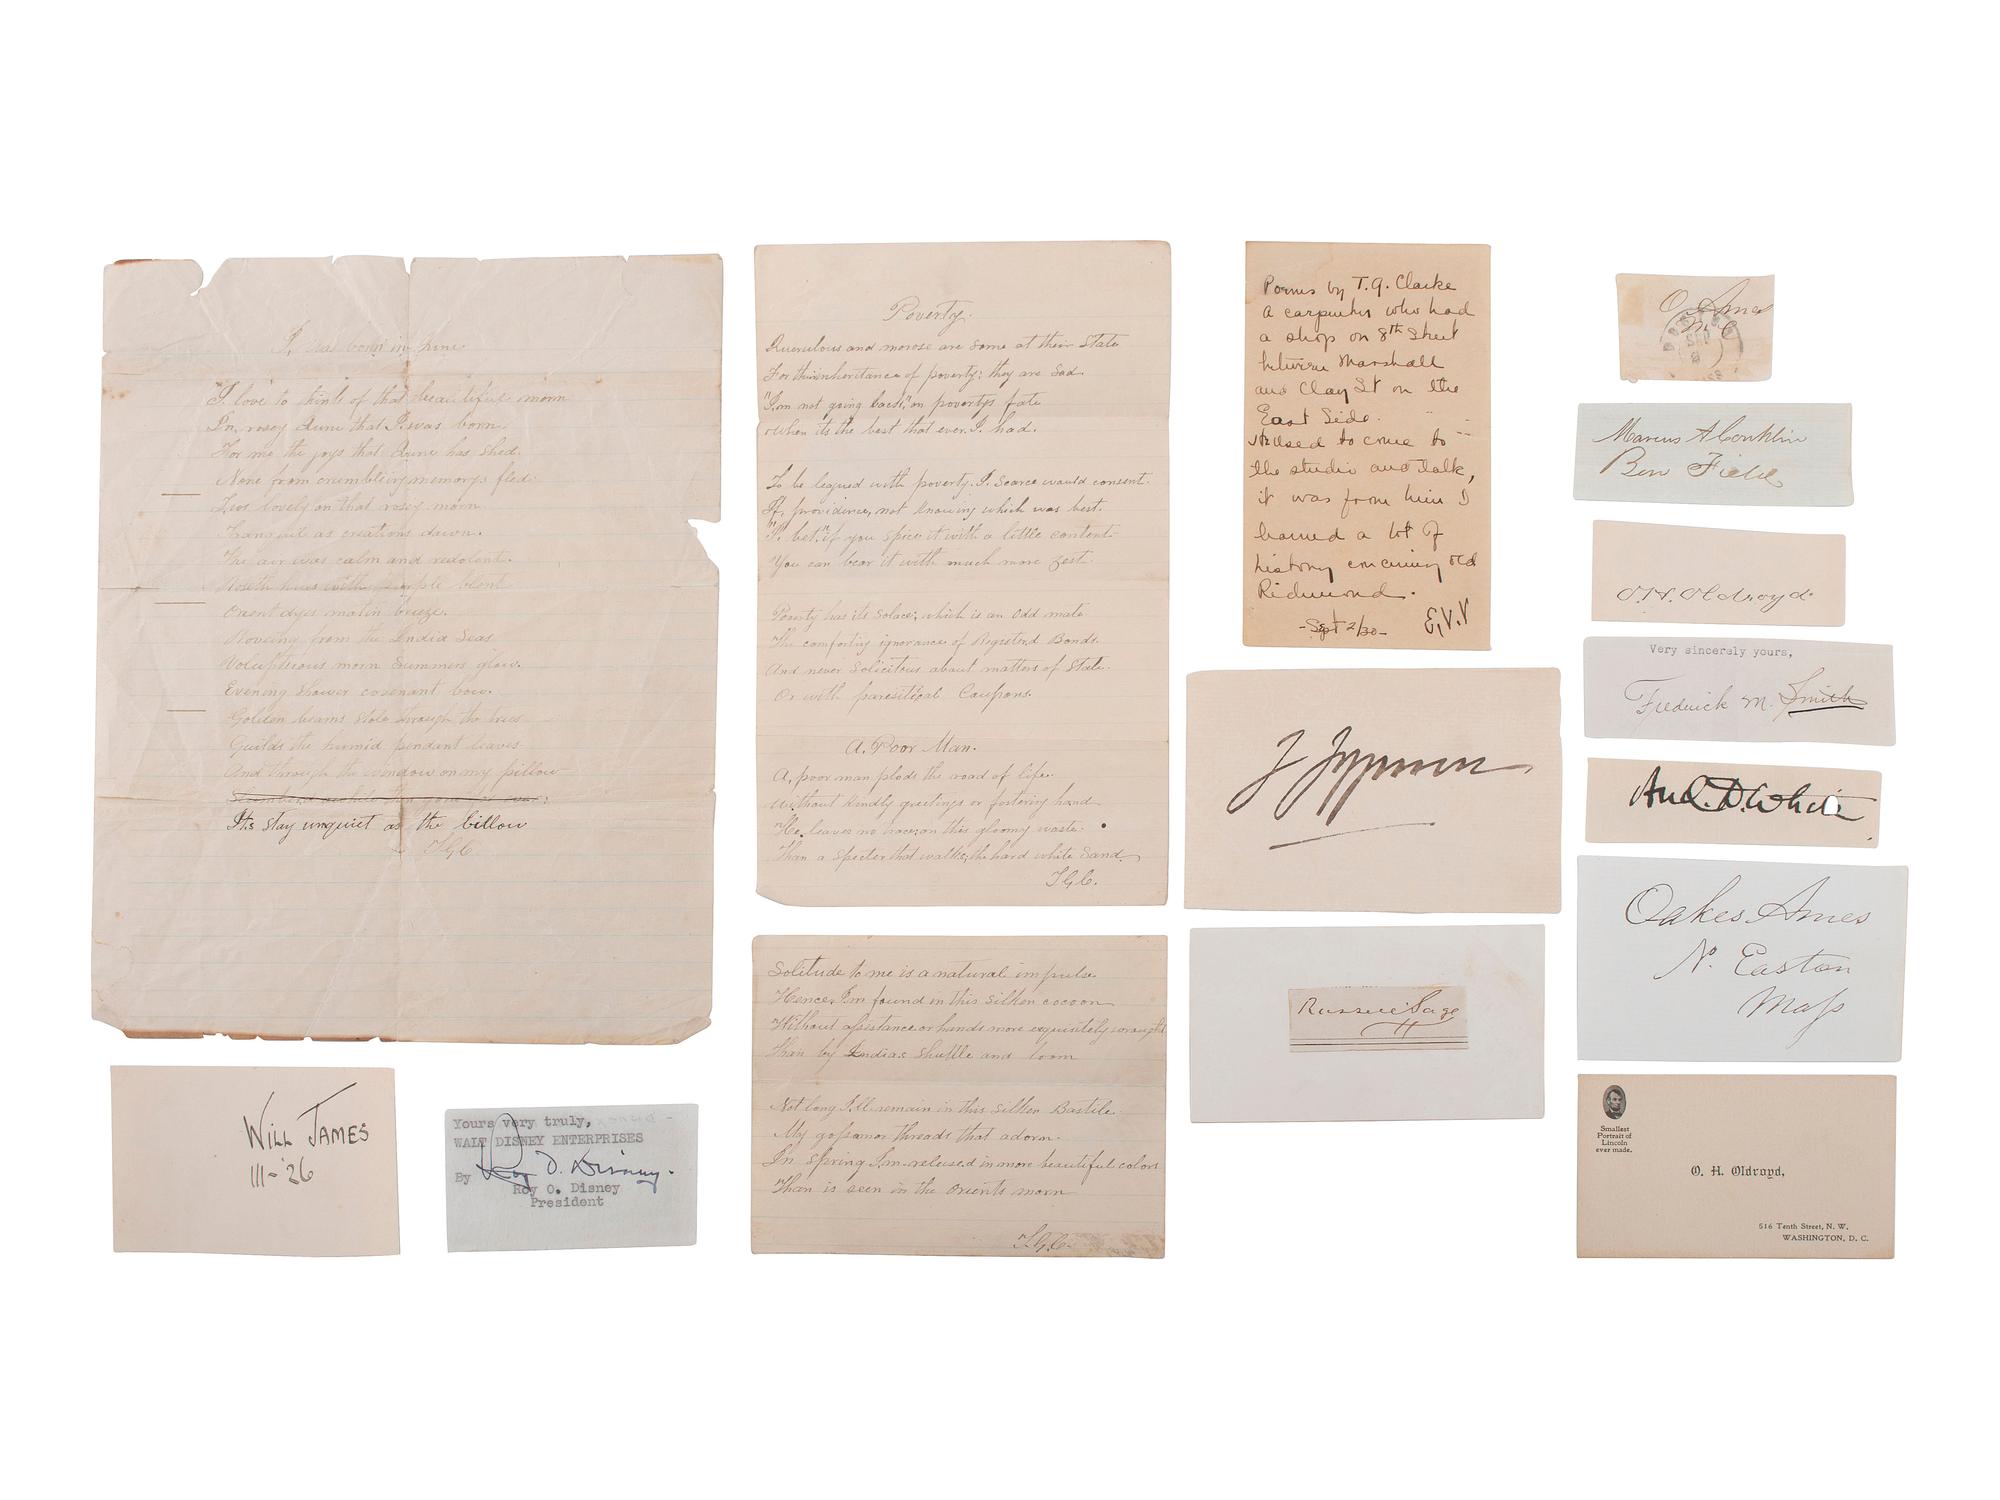 I was born in June
I love to think of that beautiful morn
In rosey June that I was born.
For me the joys that June has shed.
None from crumbling memorys fled.
Twas lovely on that rosey morn
Tranquil as creations dawn.
The air was calm and redolent.
Roseth hues with purple blent
Orient dyes matin breeze.
Moveing from the India Seas
Voluptuous morn Summers glow.
Evening shower covenant bow.
Golden beams stole through the trees
Guilds the humid pendant leaves
And through the window on my pillow
Its stay unquiet as the billow
T.G.C.
WILL JAMES
III-'26
Yours very truly,
WALT DISNEY ENTERPRISES
By Roy O. Disney.
Roy O. Disney
President
Poverty.
Querulous and morose are some at their State
For their inheritance of poverty; they are Sad.
"I'm not going back," on povertys fate
When its the best that ever I had.
To be leagued with poverty I Scarce would consent.
If, providence, not Knowing which was best.
"I bet," if you spice it with a little content
You can bear it with much more zest.
Poverty has its Solace; which is an odd mate
The comforting ignorance of Registerd Bonds.
And never Solicitous about matters of State.
Or with parisitical Coupons.
A, Poor Man.
A, poor man plods the road of life.
Without Kindly greetings or fostering hand
He leaves no trace; on this gloomy waste.
Than a Specter that walks; the hard white Sand.
T.G.C.
Solitude to me is a natural impulse
Hence, I'm found in this silken cocoon
Without assistance or hands more exquisitely wrought
Than by Indias Shuttle and loom
Not long I'll remain in this Silken Bastile.
My gossamor threads that adorn.
In Spring I'm released in more beautiful colors
Than is seen in the Orients morn
T.G.C.
Poems by T.G. Clarke
a carpenter who had
a shop on 8th Street
between Marshall
and Clay St on the
East Side.
He used to come to
the studio and talk,
it was from him I
learned a lot of
history concerning old
Richmond.
-Sept 2/30- E.V.V
Russell Sage
O Ames
M.C
Marcus A Conklin
Ben Field
O.H. Oldroyd
Very sincerely yours,
Frederick M. Smith
And. D. White
Oakes Ames
N. Easton
Mass
Smallest
Portrait of
Lincoln
ever made.
O. H. Oldroyd,
516 Tenth Street, N. W.
WASHINGTON, D. C.